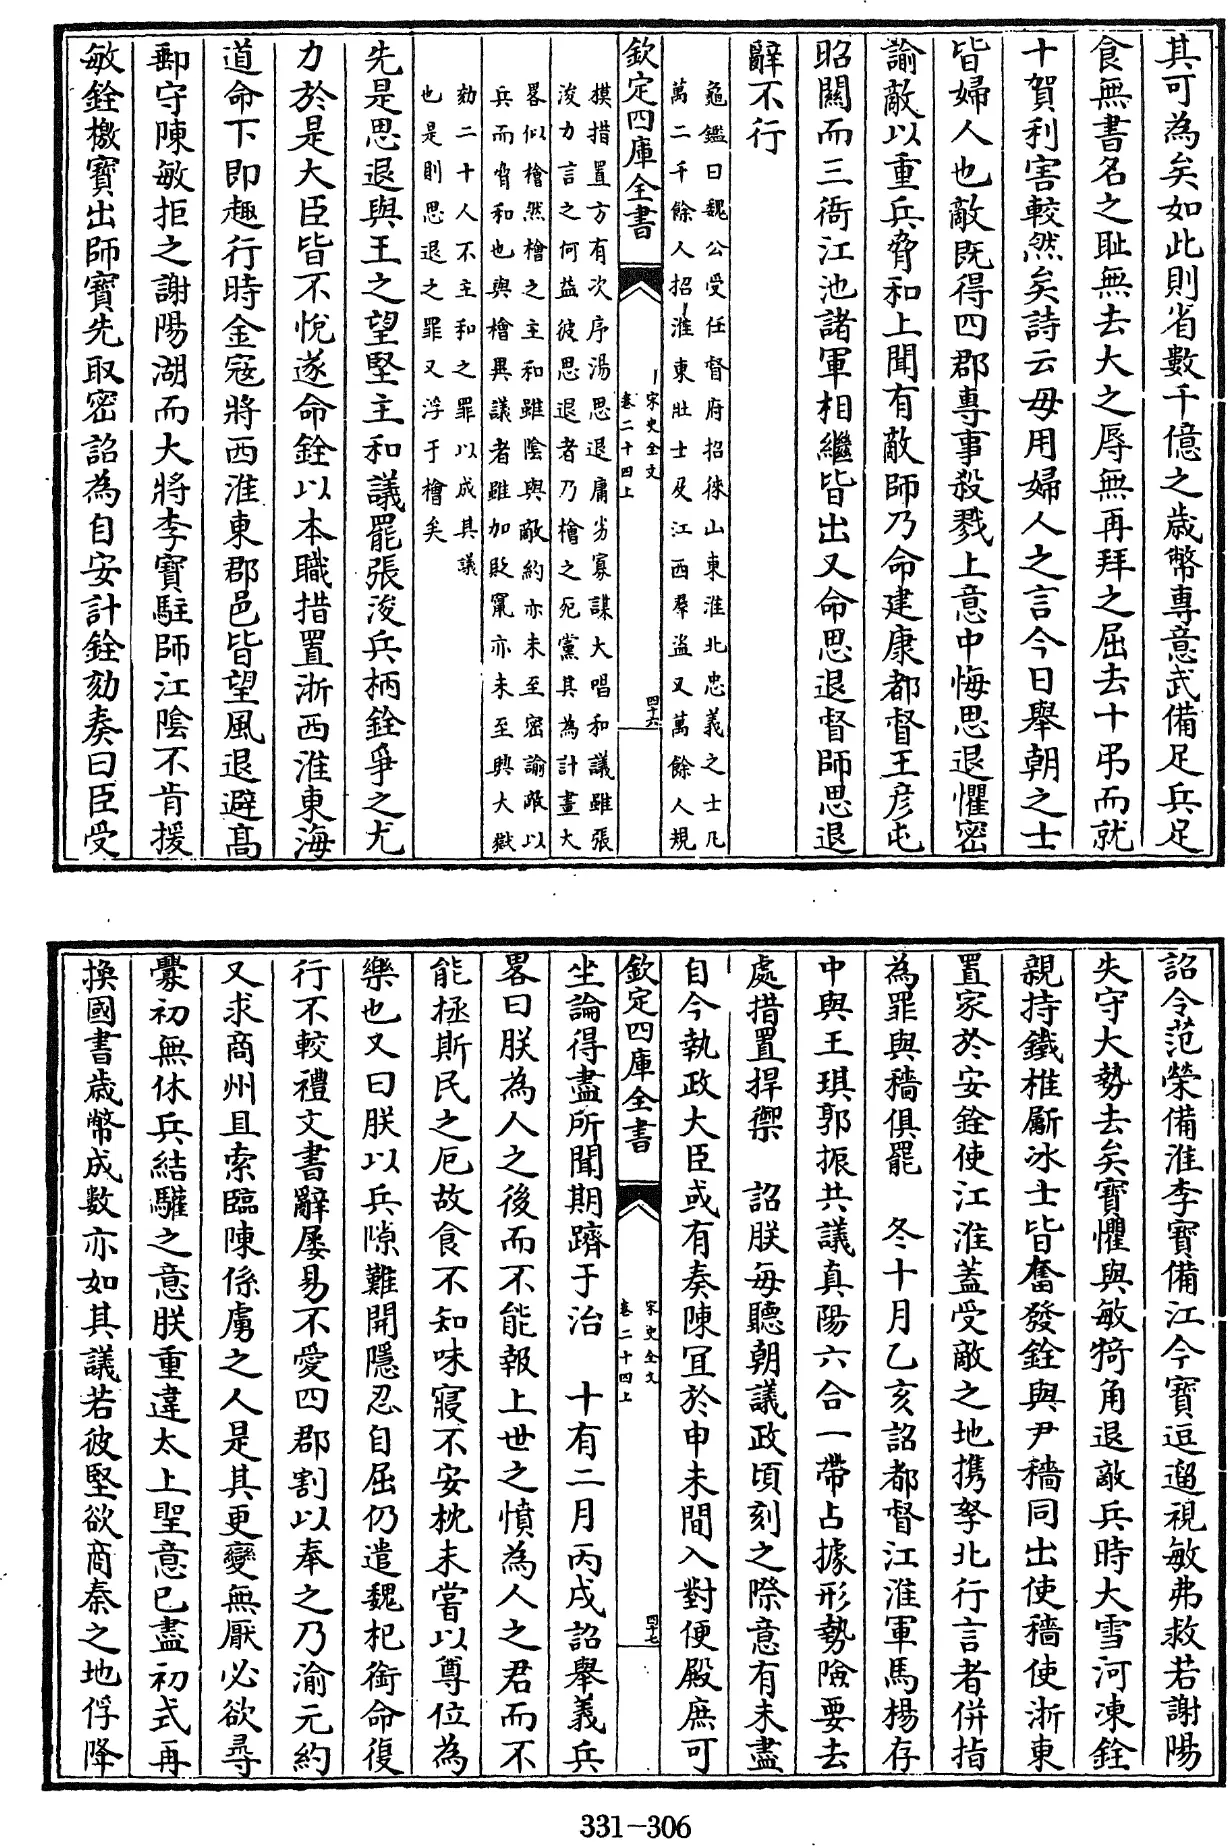 其可為矣如此則省數千億之歲幣專意武備足兵足
食無書名之耻無去大之辱無再拜之屈去十弔而就
十賀利害較然矣詩云毋用婦人之言今日舉朝之士
皆婦人也敵既得四郡專事殺戮上意中悔思退懼密
諭敵以重兵脅和上聞有敵師乃命建康都督王彦屯
昭關而三衙江池諸軍相繼皆出又命思退督師思退
辭不行
龜鑑曰魏公受任督府招徠山東淮北忠義之士凡
萬二千餘人招淮東壯士及江西羣盜又萬餘人規
欽定四庫全書
宋史全文
卷二十四上
四十六
模措置方有次序湯思退庸劣寡謀大唱和議雖張
浚力言之何益彼思退者乃檜之死黨其為計畫大
畧似檜然檜之主和雖陰與敵約亦未至密諭敵以
兵而脅和也與檜異議者雖加貶竄亦未至興大獄
劾二十人不主和之罪以成其議
也是則思退之罪又浮于檜矣
先是思退與王之望堅主和議罷張浚兵柄銓爭之尤
力於是大臣皆不悅遂命銓以本職措置浙西淮東海
道命下即趣行時金寇將西淮東郡邑皆望風退避高
郵守陳敏拒之謝陽湖而大將李寶駐師江陰不肯援
敏銓檄寶出師寶先取密詔為自安計銓劾奏曰臣受
詔令范榮備淮李寶備江今寶逗遛視敏弗救若謝陽
失守大勢去矣寶懼與敏犄角退敵兵時大雪河凍銓
親持鐵椎斸冰士皆奮發銓與尹穡同出使穡使浙東
置家於安銓使江淮蓋受敵之地携孥北行言者併指
為罪與穡俱罷　冬十月乙亥詔都督江淮軍馬楊存
中與王琪郭振共議真陽六合一帶占據形勢險要去
處措置捍禦　詔朕每聽朝議政頃刻之際意有未盡
自今執政大臣或有奏陳宜於申未間入對便殿庶可
欽定四庫全書
宋史全文
卷二十四上
四十七
坐論得盡所聞期躋于治　十有二月丙戌詔舉義兵
畧曰朕為人之後而不能報上世之憤為人之君而不
能拯斯民之厄故食不知味寢不安枕未嘗以尊位為
樂也又曰朕以兵隙難開隱忍自屈仍遣魏杞銜命復
行不較禮文書辭屢易不愛四郡割以奉之乃渝元約
又求商州且索臨陳係虜之人是其更變無厭必欲尋
釁初無休兵結驩之意朕重違太上聖意已盡初式再
換國書歲幣成數亦如其議若彼堅欲商秦之地俘降
331-306